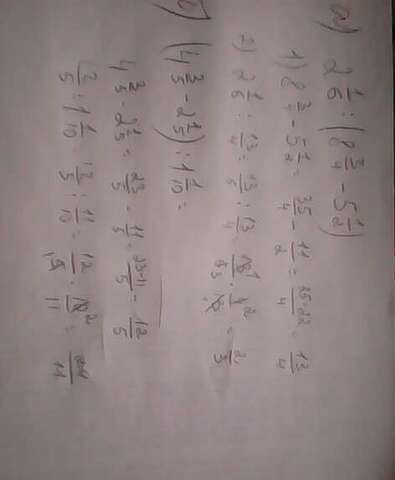 а) 2 1/6 : (8 3/4 - 5 1/2)
1) 8 3/4 - 5 1/2 = 35/4 - 11/2 = 35-22/4 = 13/4
2) 2 1/6 : 13/4 = 13/6 : 13/4 = 13/6 · 4/13 = 2/3
б) (4 3/5 - 2 1/5) : 1 1/10 =
4 3/5 - 2 1/5 = 23/5 - 11/5 = 23-11/5 = 12/5
: 1 1/10 = 12/5 : 11/10 = 12/5 · 10/11 = 24/11